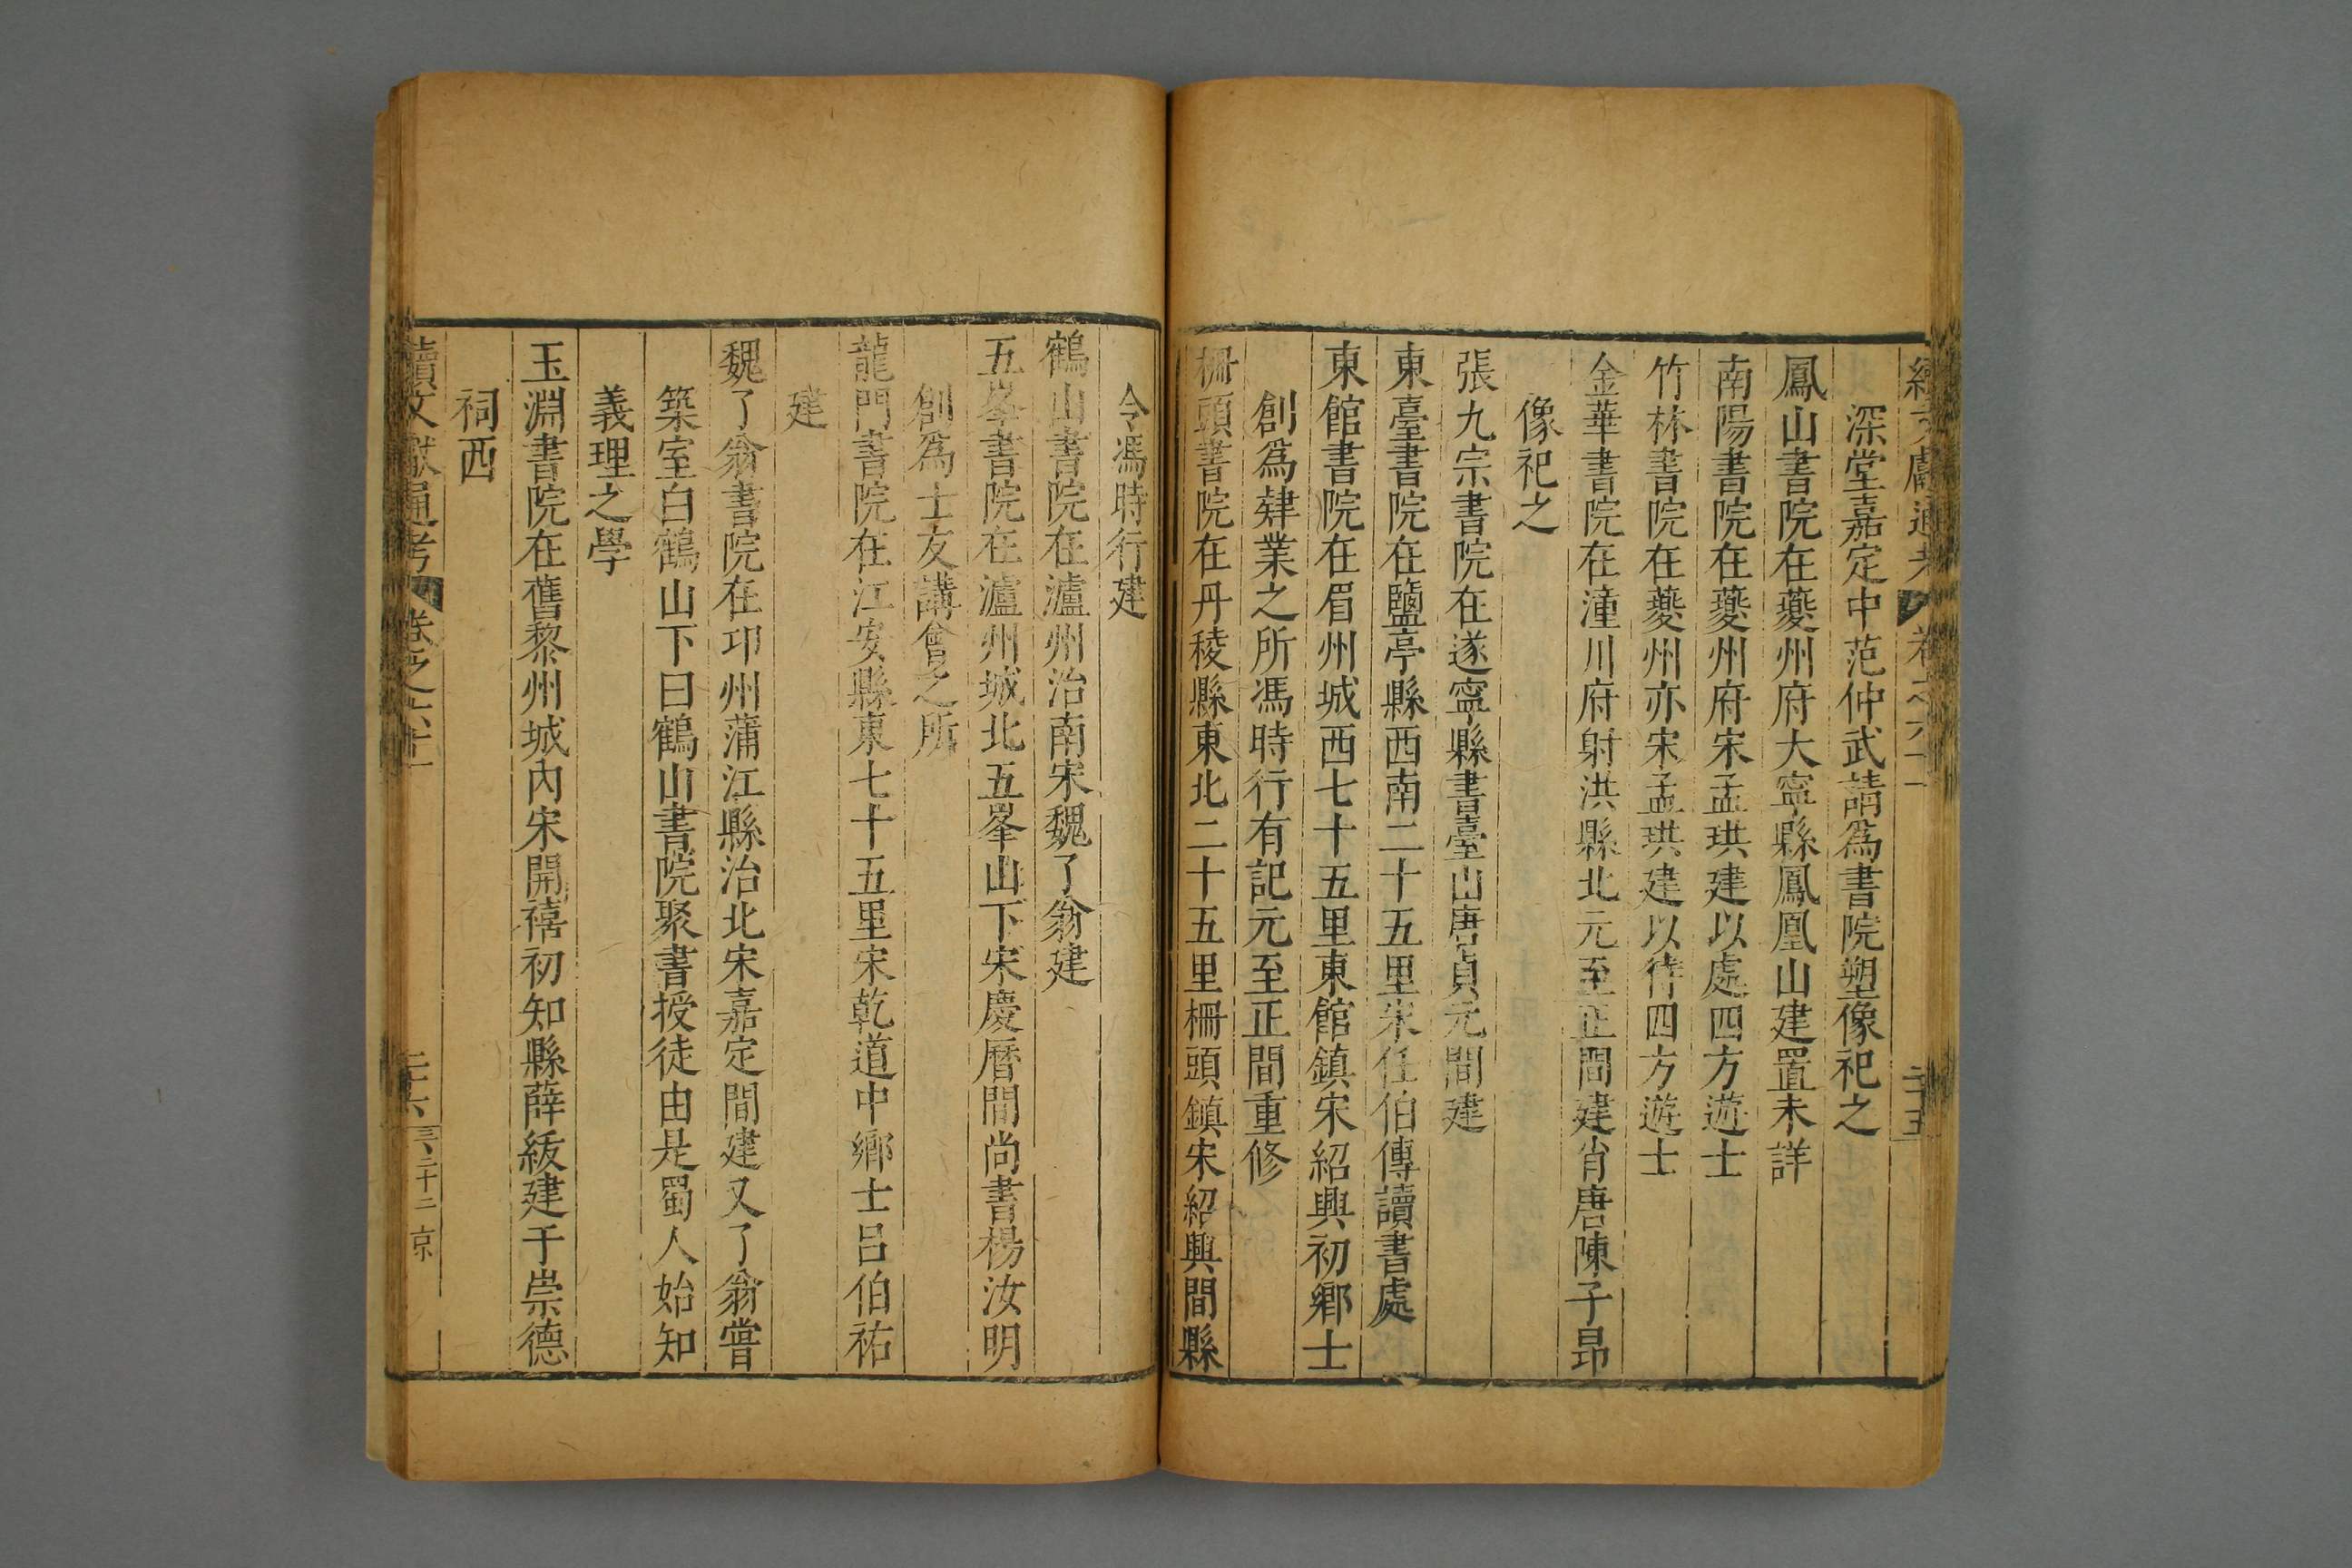 續文獻通考 卷之六十一 二十五
深堂嘉定中范仲武請爲書院塑像祀之
鳳山書院在夔州府大寧縣鳳凰山建置未詳
南陽書院在夔州府宋孟珙建以處四方遊士
竹林書院在夔州亦宋孟珙建以待四方遊士
金華書院在潼川府射洪縣北元至正間建肖唐陳子昂
像祀之
張九宗書院在遂寧縣書臺山唐貞元間建
東臺書院在鹽亭縣西南二十五里宋任伯傳讀書處
東館書院在眉州城西七十五里東館鎮宋紹興初鄉士
創爲肄業之所馮時行有記元至正間重修
柵頭書院在丹稜縣東北二十五里柵頭鎮宋紹興間縣
令馮時行建
鶴山書院在瀘州治南宋魏了翁建
五峯書院在瀘州城北五峯山下宋慶曆間尚書楊汝明
創爲士友講會之所
龍門書院在江安縣東七十五里宋乾道中鄉士呂伯祐
建
魏了翁書院在邛州蒲江縣治北宋嘉定間建又了翁嘗
築室白鶴山下曰鶴山書院聚書授徒由是蜀人始知
義理之學
玉淵書院在舊黎州城內宋開禧初知縣薛紱建于崇德
祠西
續文獻通考 卷之六十一 二十六 三百二十二 京